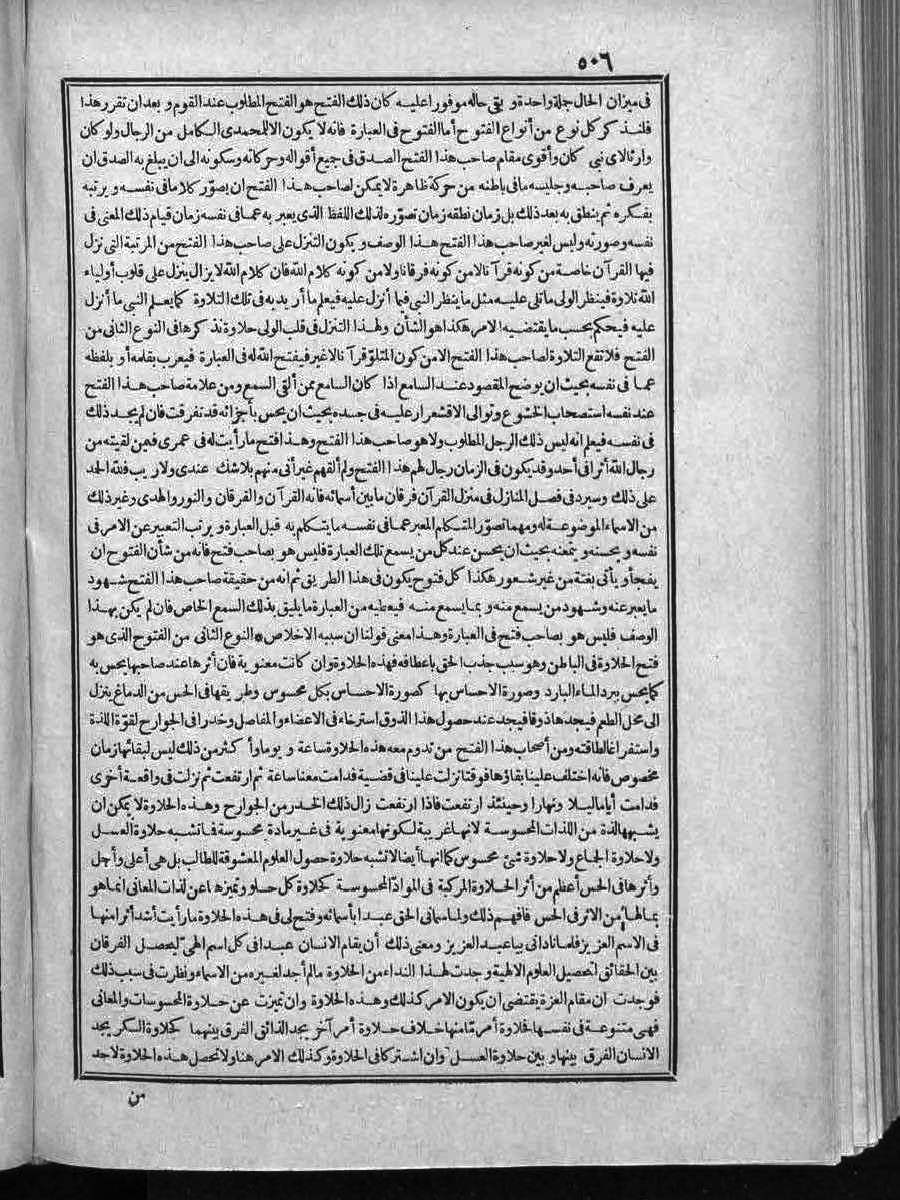 ٥٠٦
فى ميزان الحال جملة واحدة ويبقى حاله موفورا عليه كان ذلك الفتح هو الفتح المطلوب عند القوم وبعد ان تقرر هذا
فلنذكر كل نوع من أنواع الفتوح أما الفتوح فى العبارة فانه لا يكون الا للمحمدى الكامل من الرجال ولو كان
وارثا لاى نبى كان وأقوى مقام صاحب هذا الفتح الصدق فى جميع أقواله وحركاته وسكونه الى ان يبلغ به الصدق ان
يعرف صاحبه وجليسه ما فى باطنه من حركة ظاهرة لا يمكن لصاحب هذا الفتح ان يصوّر كلاما فى نفسه ويرتبه
بفكره ثم ينطق به بعد ذلك بل زمان نطقه زمان تصوّره لذلك اللفظ الذى يعبر به عما فى نفسه زمان قيام ذلك المعنى فى
نفسه وصورته وليس لغير صاحب هذا الفتح هذا الوصف ويكون التنزل على صاحب هذا الفتح من المرتبة التى نزل
فيها القرآن خاصة من كونه قرآنا لا من كونه فرقانا ولا من كونه كلام الله فان كلام الله لا يزال ينزل على قلوب أولياء
الله تلاوة فينظر الولى ما تلى عليه مثل ما ينظر النبى فيما أنزل عليه فيعلم ما أريد به فى تلك التلاوة كما يعلم النبى ما أنزل
عليه فيحكم بحسب ما يقتضيه الامر هكذا هو الشأن ولهذا التنزل فى قلب الولى حلاوة نذكرها فى النوع الثانى من
الفتح فلا تقع التلاوة لصاحب هذا الفتح الا من كون المتلوّ قرآنا لا غير فيفتح الله له فى العبارة فيعرب بقلمه أو بلفظه
عما فى نفسه بحيث ان يوضح المقصود عند السامع اذا كان السامع ممن ألقى السمع ومن علامة صاحب هذا الفتح
عند نفسه استصحاب الخشوع وتوالى الاقشعرار عليه فى جسده بحيث ان يحس بأجزائه قد تفرقت فان لم يجد ذلك
فى نفسه فيعلم انه ليس ذلك الرجل المطلوب ولا هو صاحب هذا الفتح وهذا فتح ما رأيت له فى عمرى فيمن لقيته من
رجال الله أثرا فى أحد وقد يكون فى الزمان رجال لهم هذا الفتح ولم ألقهم غير أنى منهم بلا شك عندى ولا ريب فلله الحمد
على ذلك وسيرد فى فصل المنازل فى منزل القرآن فرقان ما بين أسمائه فانه القرآن والفرقان والنور والهدى وغير ذلك
من الاسماء الموضوعة له ومهما تصوّر المتكلم المعبر عما فى نفسه ما يتكلم به قبل العبارة ويرتب التعبير عن الامر فى
نفسه ويحسنه وينمقه بحيث ان يحسن عند كل من يسمع تلك العبارة فليس هو بصاحب فتح فانه من شأن الفتوح ان
يفجأ ويأتى بغتة من غير شعور هكذا كل فتوح يكون فى هذا الطريق ثم انه من حقيقة صاحب هذا الفتح شهود
ما يعبر عنه وشهود من يسمع منه وبما يسمع منه فيعطيه من العبارة ما يليق بذلك السمع الخاص فان لم يكن بهذا
الوصف فليس هو بصاحب فتح فى العبارة وهذا معنى قولنا ان سببه الاخلاص * النوع الثانى من الفتوح الذى هو
فتح الحلاوة فى الباطن وهو سبب جذب الحق باعطافه فهذه الحلاوة وان كانت معنوية فان أثرها عند صاحبها يحس به
كما يحس ببرد الماء البارد وصورة الاحساس بها كصورة الاحساس بكل محسوس وطريقها فى الحس من الدماغ ينزل
الى محل الطعم فيجدها ذوقا فيجد عند حصول هذا الذوق استرخاء فى الاعضاء والمفاصل وخدرا فى الجوارح لقوّة اللذة
واستفراغا لطاقته ومن أصحاب هذا الفتح من تدوم معه هذه الحلاوة ساعة ويوما وأكثر من ذلك ليس لبقائها زمان
مخصوص فانه اختلف علينا بقاؤها فوقتا نزلت علينا فى قضية فدامت معنا ساعة ثم ارتفعت ثم نزلت فى واقعة أخرى
فدامت أياما ليلا ونهارا وحينئذ ارتفعت فاذا ارتفعت زال ذلك الخدر من الجوارح وهذه الحلاوة لا يمكن ان
يشبهها لذة من اللذات المحسوسة لانها غريبة لكونها معنوية فى غير مادة محسوسة فما تشبه حلاوة العسل
ولا حلاوة الجماع ولا حلاوة شئ محسوس كما انها أيضا لا تشبه حلاوة حصول العلوم المعشوقة للطالب بل هى أعلى وأجل
وأثرها فى الحس أعظم من أثر الحلاوة المركبة فى الموادّ المحسوسة كحلاوة كل حلو وتميزها عن لذات المعانى انما هو
بما لها من الاثر فى الحس فافهم ذلك ولما سمانى الحق عبدا بأسمائه وفتح لى فى هذه الحلاوة ما رأيت أشد أثرا منها
فى الاسم العزيز فلما نادانى يا عبد العزيز ومعنى ذلك أن يقام الانسان عبدا فى كل اسم الهى ليحصل الفرقان
بين الحقائق لتحصيل العلوم الالهية وجدت لهذا النداء من الحلاوة ما لم أجد لغيره من الاسماء ونظرت فى سبب ذلك
فوجدت ان مقام العزة يقتضى ان يكون الامر كذلك وهذه الحلاوة وان تميزت عن حلاوة المحسوسات والمعانى
فهى متنوعة فى نفسها فحلاوة أمر مّا منها خلاف حلاوة أمر آخر يجد الذائق الفرق بينهما كحلاوة السكر يجد
الانسان الفرق بينها وبين حلاوة العسل وان اشتركا فى الحلاوة وكذلك الامر هنا ولا تحصل هذه الحلاوة لاحد
من